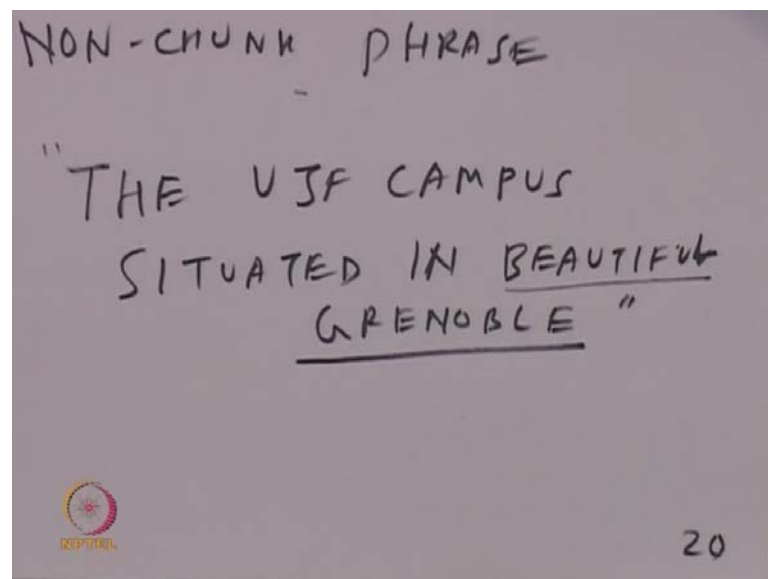 NON-CHUNK PHRASE
"THE UJF CAMPUS
SITUATED IN BEAUTIFUL
GRENOBLE"
NPTEL
20